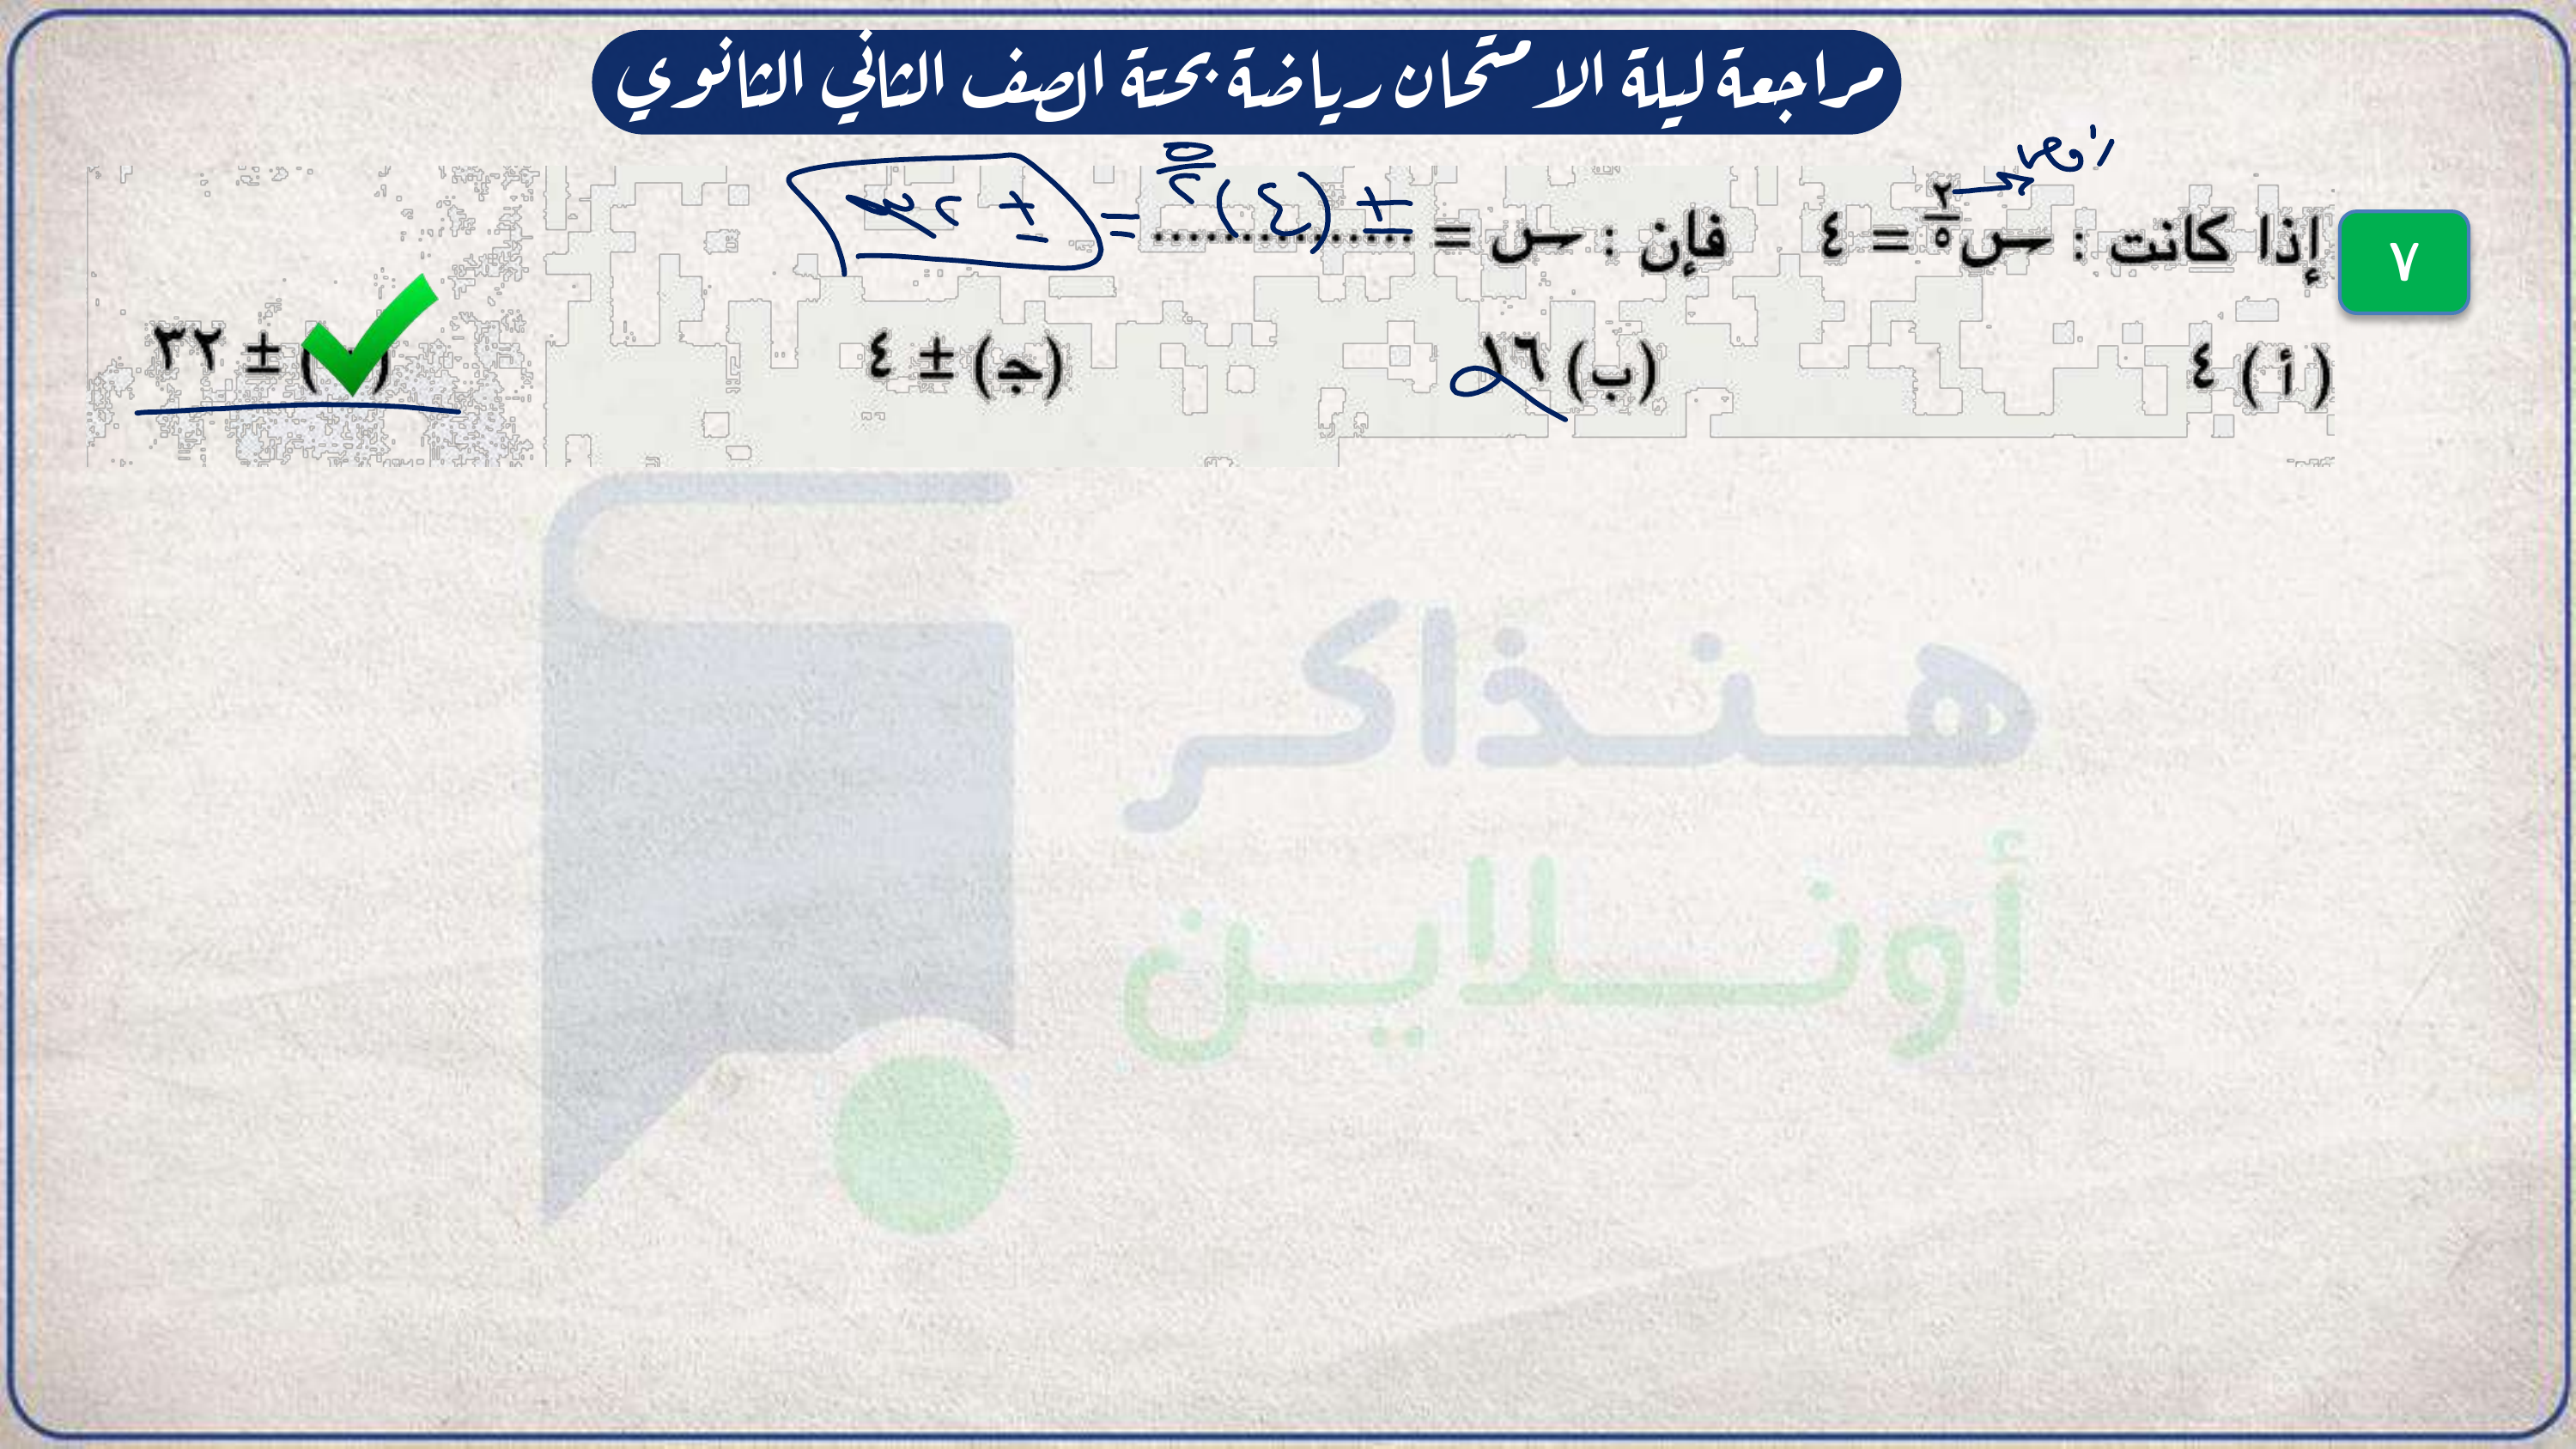 مراجعة ليلة الامتحان رياضة بحتة الصف الثاني الثانوي
زوجى
٧ إذا كانت : س^(٢/٥) = ٤ فإن : س = ............... ± (٤)^(٥/٢) = ± ٣٢
(أ) ٤ (ب) ١٦ (ج) ± ٤ ( ) ± ٣٢
هنذاكر
أونلاين